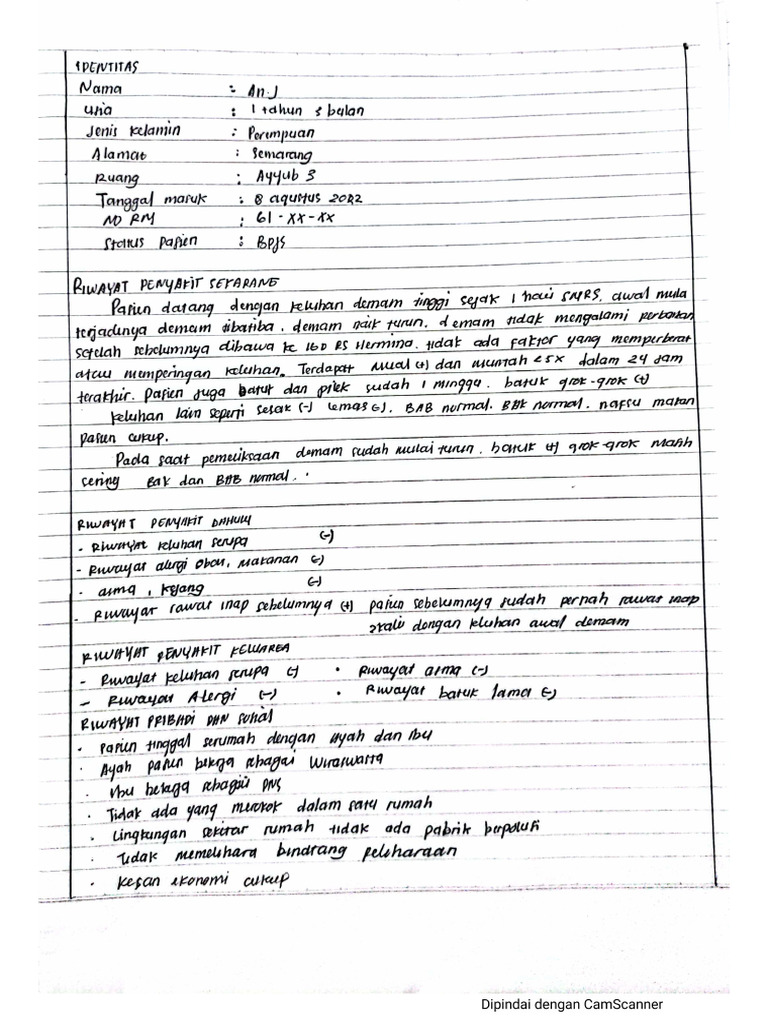 IDENTITAS
Nama : An. J
Usia : 1 tahun 3 bulan
Jenis kelamin : Perempuan
Alamat : Semarang
Ruang : Ayyub 3
Tanggal masuk : 8 agustus 2022
NO RM : 61-XX-XX
Status pasien : BPJS
RIWAYAT PENYAKIT SEKARANG
Pasien datang dengan keluhan demam tinggi sejak 1 hari SMRS, awal mula
terjadinya demam tibatiba. demam naik turun. demam tidak mengalami perbaikan
setelah sebelumnya dibawa ke IGD RS Hermina. tidak ada faktor yang memperberat
atau memperingan keluhan. Terdapat Mual (+) dan muntah <5x dalam 24 Jam
terakhir. Pasien juga batuk dan pilek sudah 1 minggu. batuk grok-grok (+)
keluhan lain seperti sesak (-) lemas (-). BAB normal. BAK normal. nafsu makan
pasien cukup.
Pada saat pemeriksaan demam sudah mulai turun. batuk (+) grok-grok masih
sering BAK dan BAB normal.
RIWAYAT PENYAKIT DAHULU
- Riwayat keluhan serupa (-)
- Riwayat alergi obat, makanan (-)
- asma, kejang (-)
- Riwayat rawat inap sebelumnya (+) pasien sebelumnya sudah pernah rawat inap
2kali dengan keluhan awal demam
RIWAYAT PENYAKIT KELUARGA
- Riwayat keluhan serupa (-) • Riwayat asma (-)
- Riwayat Alergi (-) • Riwayat batuk lama (-)
RIWAYAT PRIBADI DAN SOSIAL
• Pasien tinggal serumah dengan ayah dan ibu
• Ayah pasien bekerja sebagai wiraswasta
• Ibu bekerja sebagai PNS
• Tidak ada yang merokok dalam satu rumah
• Lingkungan sekitar rumah tidak ada pabrik berpolusi
• Tidak memelihara bindtang peliharaan
• kesan ekonomi cukup
Dipindai dengan CamScanner